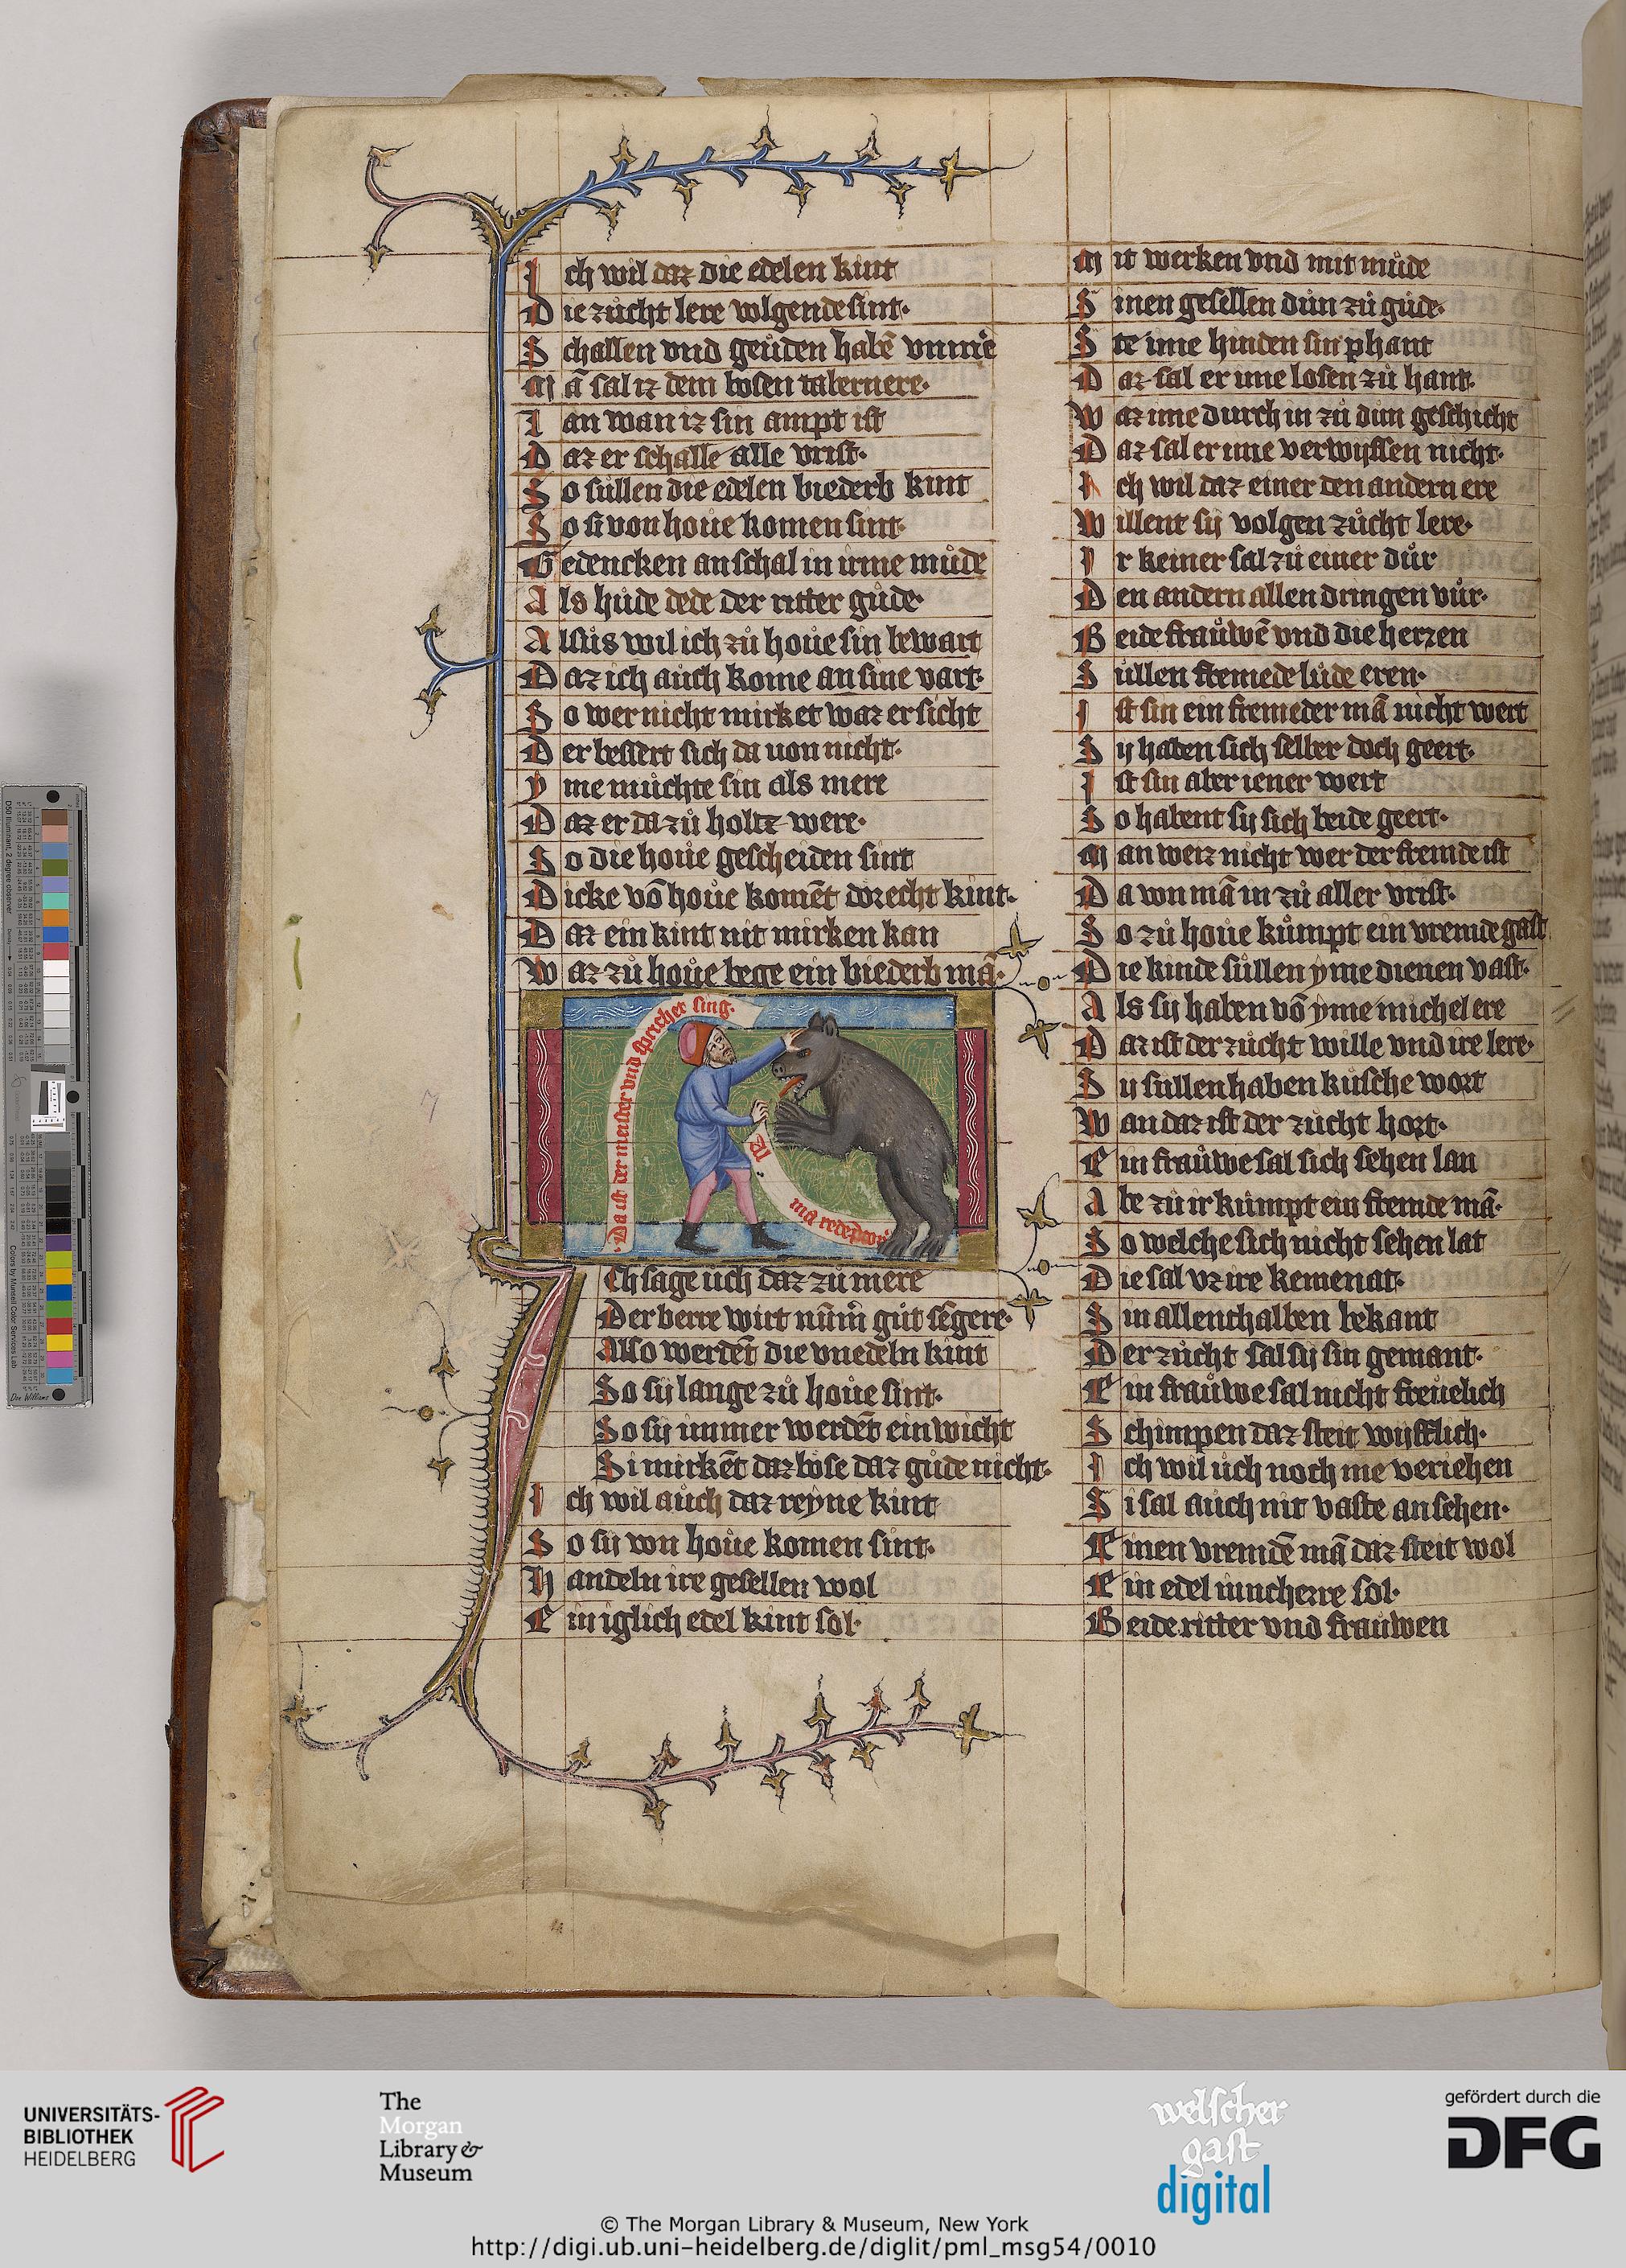 Ich wil daz die edelen kint
Die zůcht lere volgende sint·
Schallen vnd geůden habē vnmē
Mā sal iz dem bosen tabernere·
Lan wan iz sin ampt ist
Daz er schalle alle vrist·
So sůllen die edelen biederb kint
So si von houe komen sint·
Gedencken an schal in irme můde
Als hůde dede der ritter gůde·
Alsůs wil ich zů houe sin bewart
Daz ich aůch kome an sine vart·
So wer nicht mirket waz er sicht
Der bessert sich da uon nicht·
Yme můchte sin als mere
Daz er da zů holtz were·
So die houe gescheiden sint
Dicke vō houe komēt dorecht kint·
Daz ein kint nit mirken kan
Waz zů houe bege ein biederb mā·
Da ist der meister vnd sprichet sing·
Al
ma rede
Ich sage ůch daz zů mere
Der berre wirt nūm̄ gůt sēgere·
Also werdēt die vnedeln kint
So sy lange zů houe sint·
So sy immer werdēt ein wicht
Si mirkēt daz bose daz gůde nicht·
Ich wil aůch daz reyne kint
So sy von houe komen sint·
Handeln ire gesellen wol
Ein iglich edel kint sol·
Mit werken vnd mit můde
Sinen gesellen důn zů gůde·
Ste ime hinden sin phant
Daz sal er ime losen zů hant·
Waz ime durch in zů důn geschicht
Daz sal er ime verwyssen nicht·
Ich wil daz einer den andern ere
Willent sy volgen zůcht lere·
Ir keiner sal zů einer důr
Den andern allen dringen vůr·
Beide fraůwē vnd die herzen
Sůllen fremede lůde eren·
Ist sin ein fremeder mā nicht wert
Sy haben sich selber doch geert·
Ist sin aber iener wert
So habent sy sich beide geert·
Man weiz nicht wer der fremde ist
Da von mā in zů aller vrist·
So zů houe kůmpt ein vremde gast
Die kinde sůllen yme dienen vast·
Als sy haben vō yme michel ere
Daz ist der zůcht wille vnd ire lere·
Sy sullen haben kůsche wort
Wan daz ist der zůcht hort·
Ein fraůwe sal sich sehen lan
Abe zů ir kůmpt ein fremde mā·
So welche sich nicht sehen lat
Die sal vz ire kemenat·
Sin allenthalben bekant
Der zůcht sal sy sin gemant·
Ein fraůwe sal nicht freuelich
Schimpen daz steit wyfflich·
Ich wil ůch noch me veriehen
Si sal aůch nit vaste an sehen·
Einen vremdē mā daz steit wol
Ein edel iuncherre sol·
Beide ritter vnd fraůwen
UNIVERSITÄTS-
BIBLIOTHEK
HEIDELBERG
The
Morgan
Library &
Museum
welscher
gast
digital
gefördert durch die
DFG
© The Morgan Library & Museum, New York
http://digi.ub.uni-heidelberg.de/diglit/pml_msg54/0010